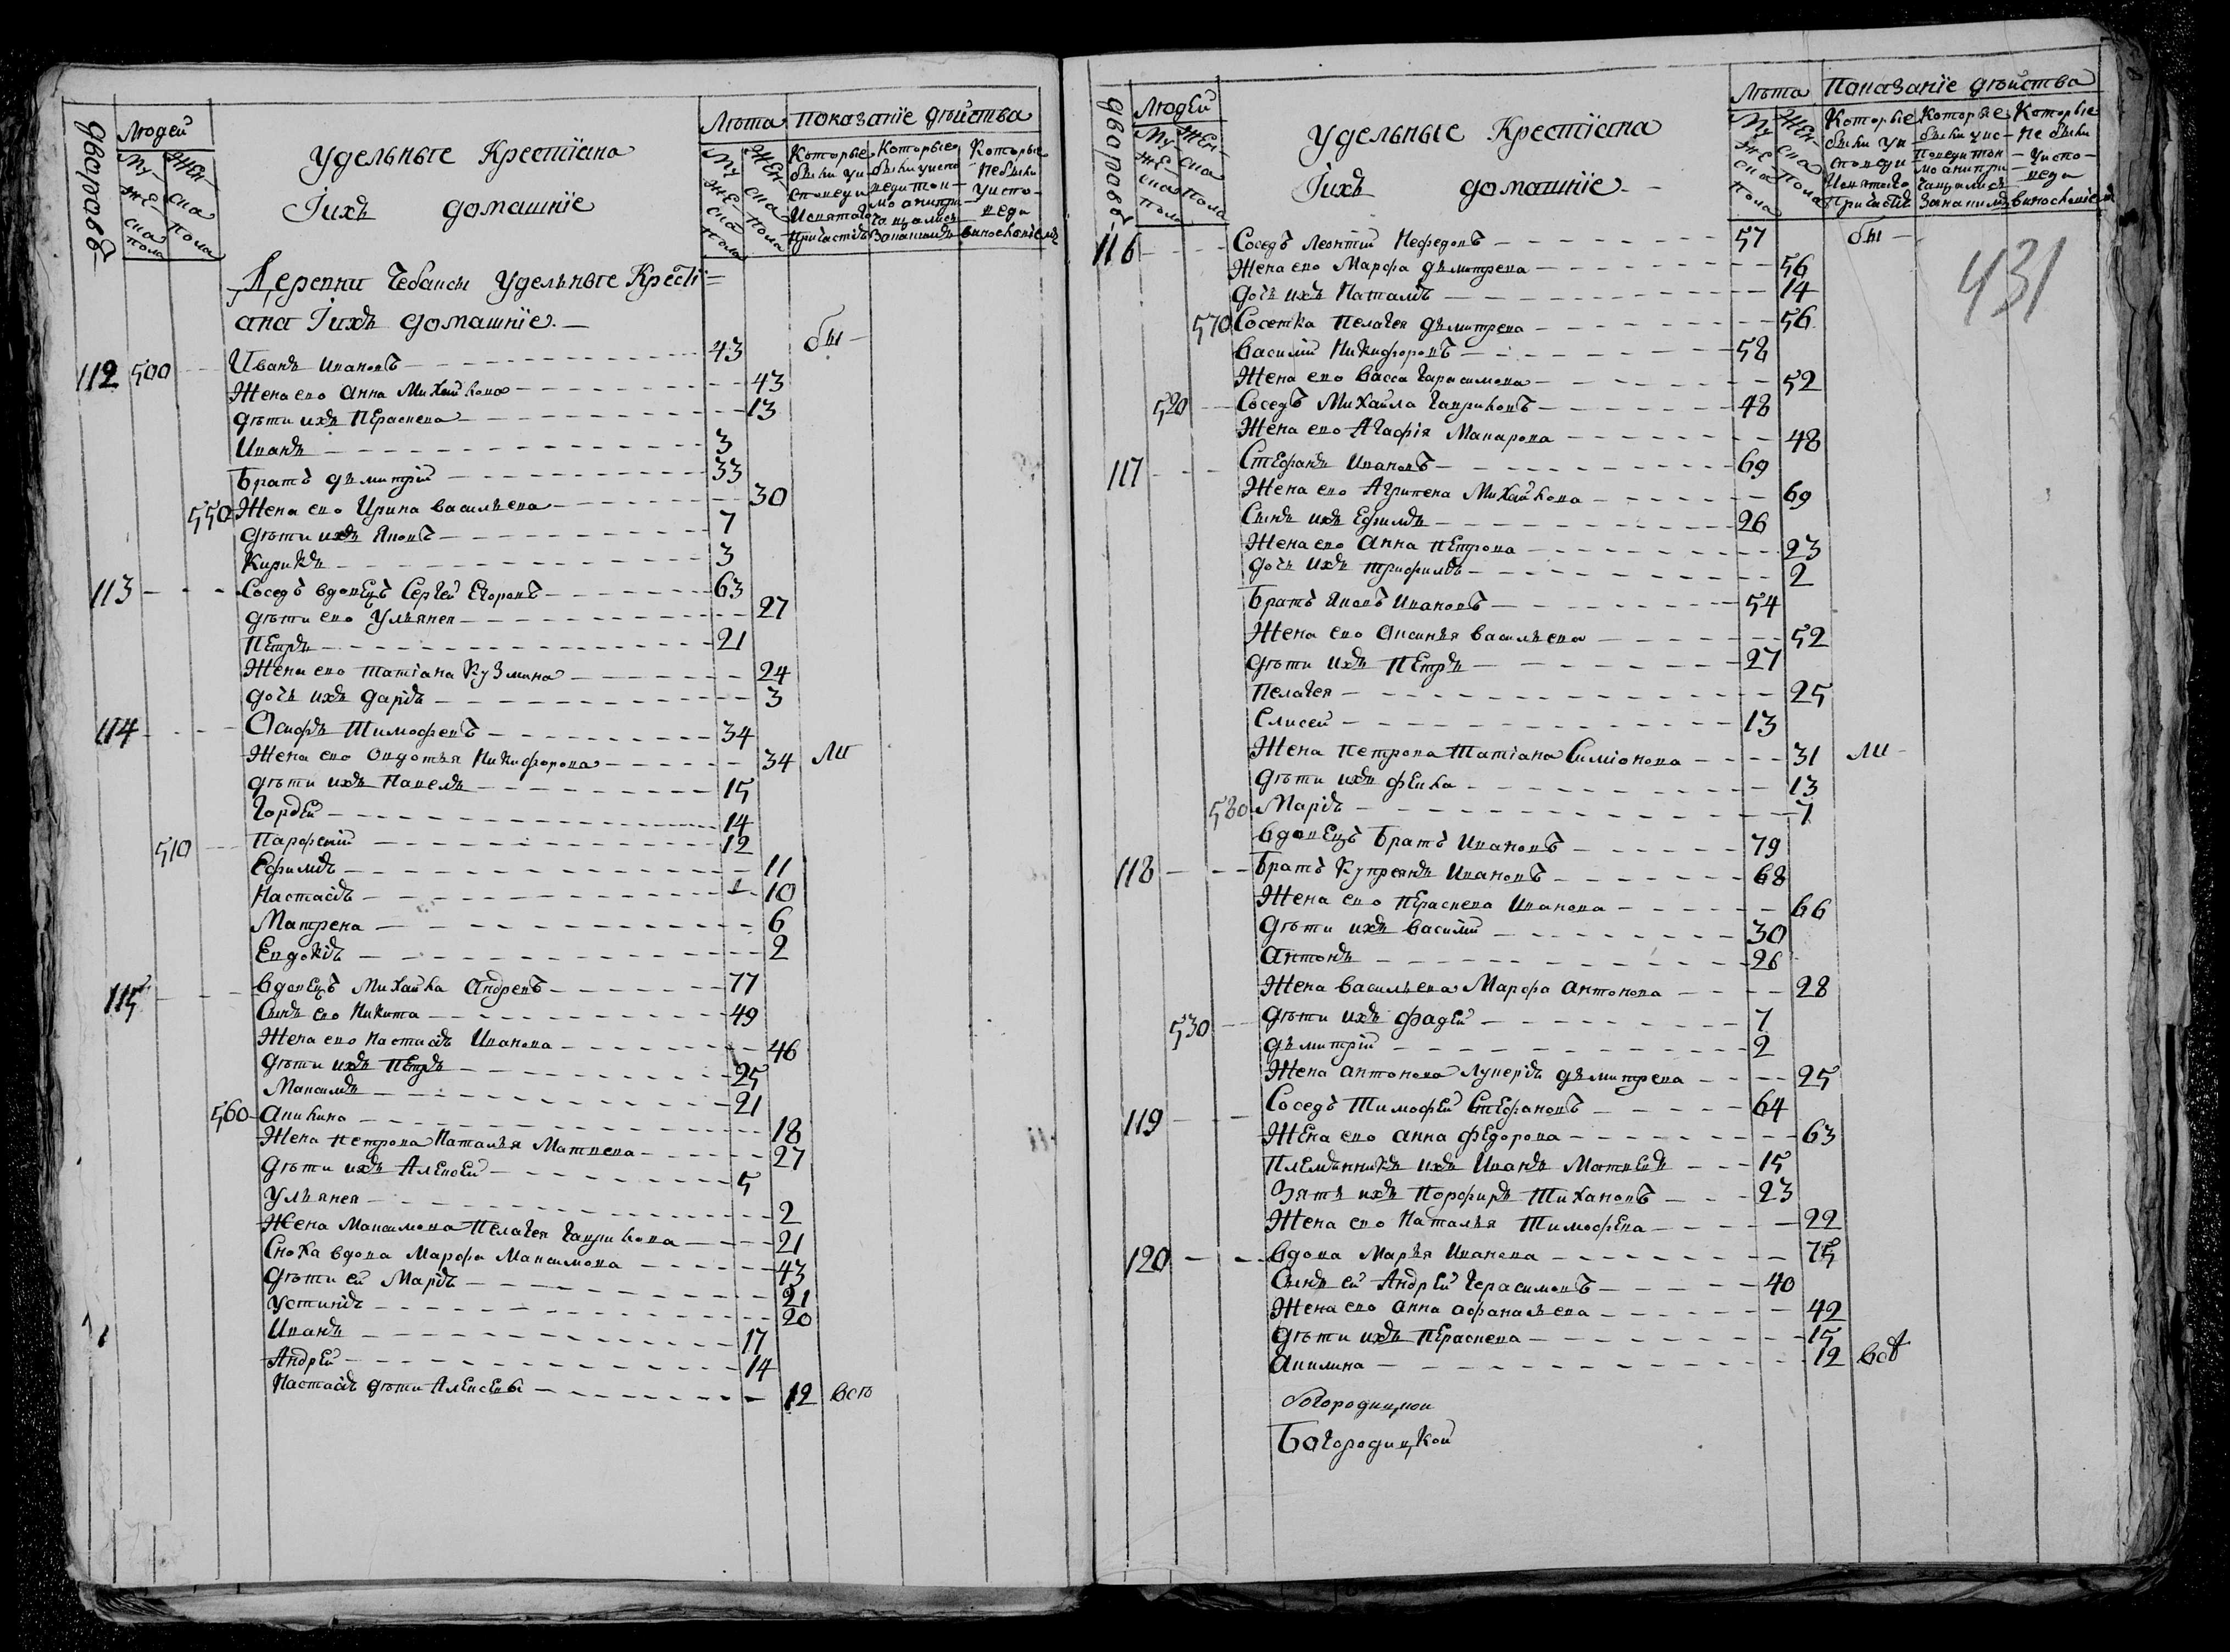 дворовъ
Людей
Мужеска пола
Женска пола
Удельные Крестїана
Їихъ домашнїе
Лѣта
Мужеска пола
Женска пола
Показанїе дѣйства
Которые были уисповеди Исвятаго Причастїя
Которые были уисповеди токмо анипричащались Заканимъ
Которые небыли уисповеди винословїемъ
Деревни Чебаксы Удельные Крестї=
ана Їихъ домашнїе.
112 500 Иванъ Ивановъ 43 бы
Жена ево Анна Михайлова 43
дѣти ихъ Пераскева 13
Иванъ 3
Братъ дьмитрїй 33
550 Жена ево Ирина васильева 30
дѣти ихъ Яковъ 7
Кирикъ 3
113 Соседъ вдовецъ Сергей Егоровъ 63
дѣти ево Ульянея 27
Петръ 21
Жена ево татїана Кузмина 24
дочь ихъ дарїя 3
114 Осифъ Тимофеевъ 34
Жена ево Овдотья Никифорова 34 ли
дѣти ихъ Павелъ 15
Гордей 14
510 Парфенїй 12
Ефимїя 11
Настасїя 10
Матрена 6
Евдокїя 2
115 вдовецъ Михайла Андревъ 77
Сынъ ево Никита 49
Жена ево Настасїя Иванова 46
дѣти ихъ Петръ 25
Максимъ 21
560 Акилина 18
Жена Петрова Наталья Матвева 27
дѣти ихъ Алексей 5
Ульянея 2
Жена Максимова Пелагея Гаврилова 21
Сноха вдова Марфа Максимова 43
дѣти ей Марїя 21
Устинїя 20
Иванъ 17
Андрей 14
Настасїя дѣти Алексевы 12 всѣ
дворовъ
Людей
Мужеска пола
Женска пола
Удельные Крестїана
Їихъ домашнїе
Лѣта
Мужеска пола
Женска пола
Показанїе дѣйства
Которые были уисповеди Исвятаго Причастїя
Которые были уисповеди токмо анипричащались Заканимъ
Которые не были уисповеди винословїемъ
431
116 Соседъ Леонтїй Нефедовъ 57 бы
Жена ево Марфа дьмитрева 56
дочь ихъ Наталїя 14
570 Соседка Пелагея дьмитрева 56
василїй Никифоровъ 58
Жена ево васса Гарасимова 52
520 Соседъ Михайла Гавриловъ 48
Жена ево Агафїя Макарова 48
117 Стефанъ Ивановъ 69
Жена ево Агрипена Михайлова 69
Сынъ ихъ Ефимъ 26
Жена ево Анна Петрова 23
дочь ихъ трифимїя 2
Братъ Яковъ Ивановъ 54
Жена ево Аксинья васильева 52
дѣти ихъ Петръ 27
Пелагея 25
Елисей 13
Жена Петрова Татїана Симїонова 31 ли
дѣти ихъ Фекла 13
580 Марїя 7
вдовецъ Братъ Ивановъ 79
118 Братъ Купреянъ Ивановъ 68
Жена ево Пераскева Иванова 66
дѣти ихъ василїй 30
Антонъ 26
Жена васильева Марфа Антонова 28
530 дѣти ихъ Фадей 7
дьмитрїй 2
Жена Антонова Лукерїя дьмитрева 25
119 Соседъ Тимофей Стефановъ 64
Жена ево Анна Федорова 63
Племянникъ ихъ Иванъ Матвевъ 15
Зять ихъ Порфиръ Тихановъ 23
Жена ево Наталья Тимофева 22
120 вдова Марья Иванова 75
Сынъ ей Андрей Герасимовъ 40
Жена ево Анна Афанасьева 42
дѣти ихъ Пераскева 15
Акилина 12 всѣ
Богородицкой
Богородицкой